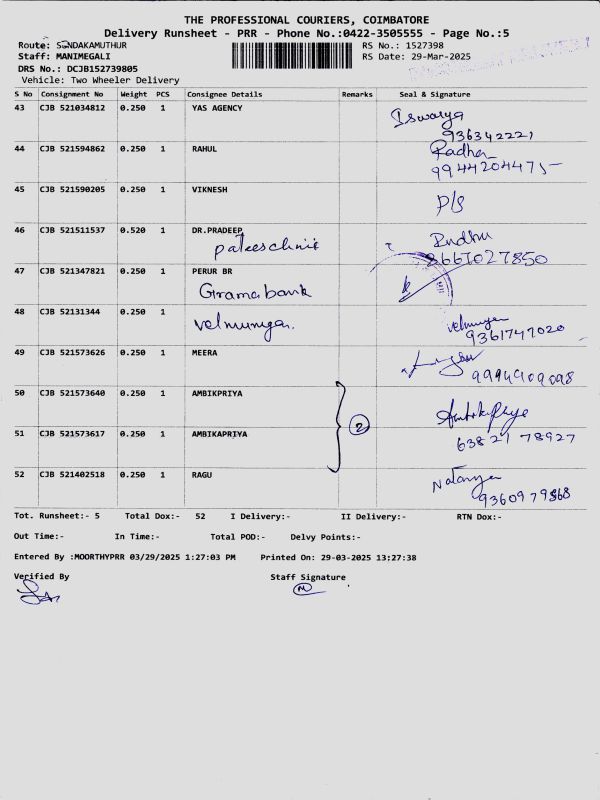 THE PROFESSIONAL COURIERS, COIMBATORE
Delivery Runsheet - PRR - Phone No.:0422-3505555 - Page No.:5
Route: SUNDAKAMUTHUR
RS No.: 1527398
Staff: MANIMEGALI
RS Date: 29-Mar-2025
DRS No.: DCJB152739805
Vehicle: Two Wheeler Delivery
S No Consignment No Weight PCS Consignee Details Remarks Seal & Signature
43 CJB 521034812 0.250 1 YAS AGENCY Iswarya
936342221
44 CJB 521594862 0.250 1 RAHUL Radha
9944204475
45 CJB 521590205 0.250 1 VIKNESH P/S
46 CJB 521511537 0.520 1 DR.PRADEEP
8667027850
47 CJB 521347821 0.250 1 PERUR BR
Grama bank
48 CJB 52131344 0.250 1
velmurugan. velmurugan
9361747020
49 CJB 521573626 0.250 1 MEERA
9994909098
50 CJB 521573640 0.250 1 AMBIKPRIYA
2
51 CJB 521573617 0.250 1 AMBIKAPRIYA
63821 78927
52 CJB 521402518 0.250 1 RAGU
Tot. Runsheet:- 5 Total Dox:- 52 I Delivery:- II Delivery:- RTN Dox:-
Out Time:- In Time:- Total POD:- Delvy Points:-
Entered By :MOORTHYPRR 03/29/2025 1:27:03 PM Printed On: 29-03-2025 13:27:38
Verified By Staff Signature